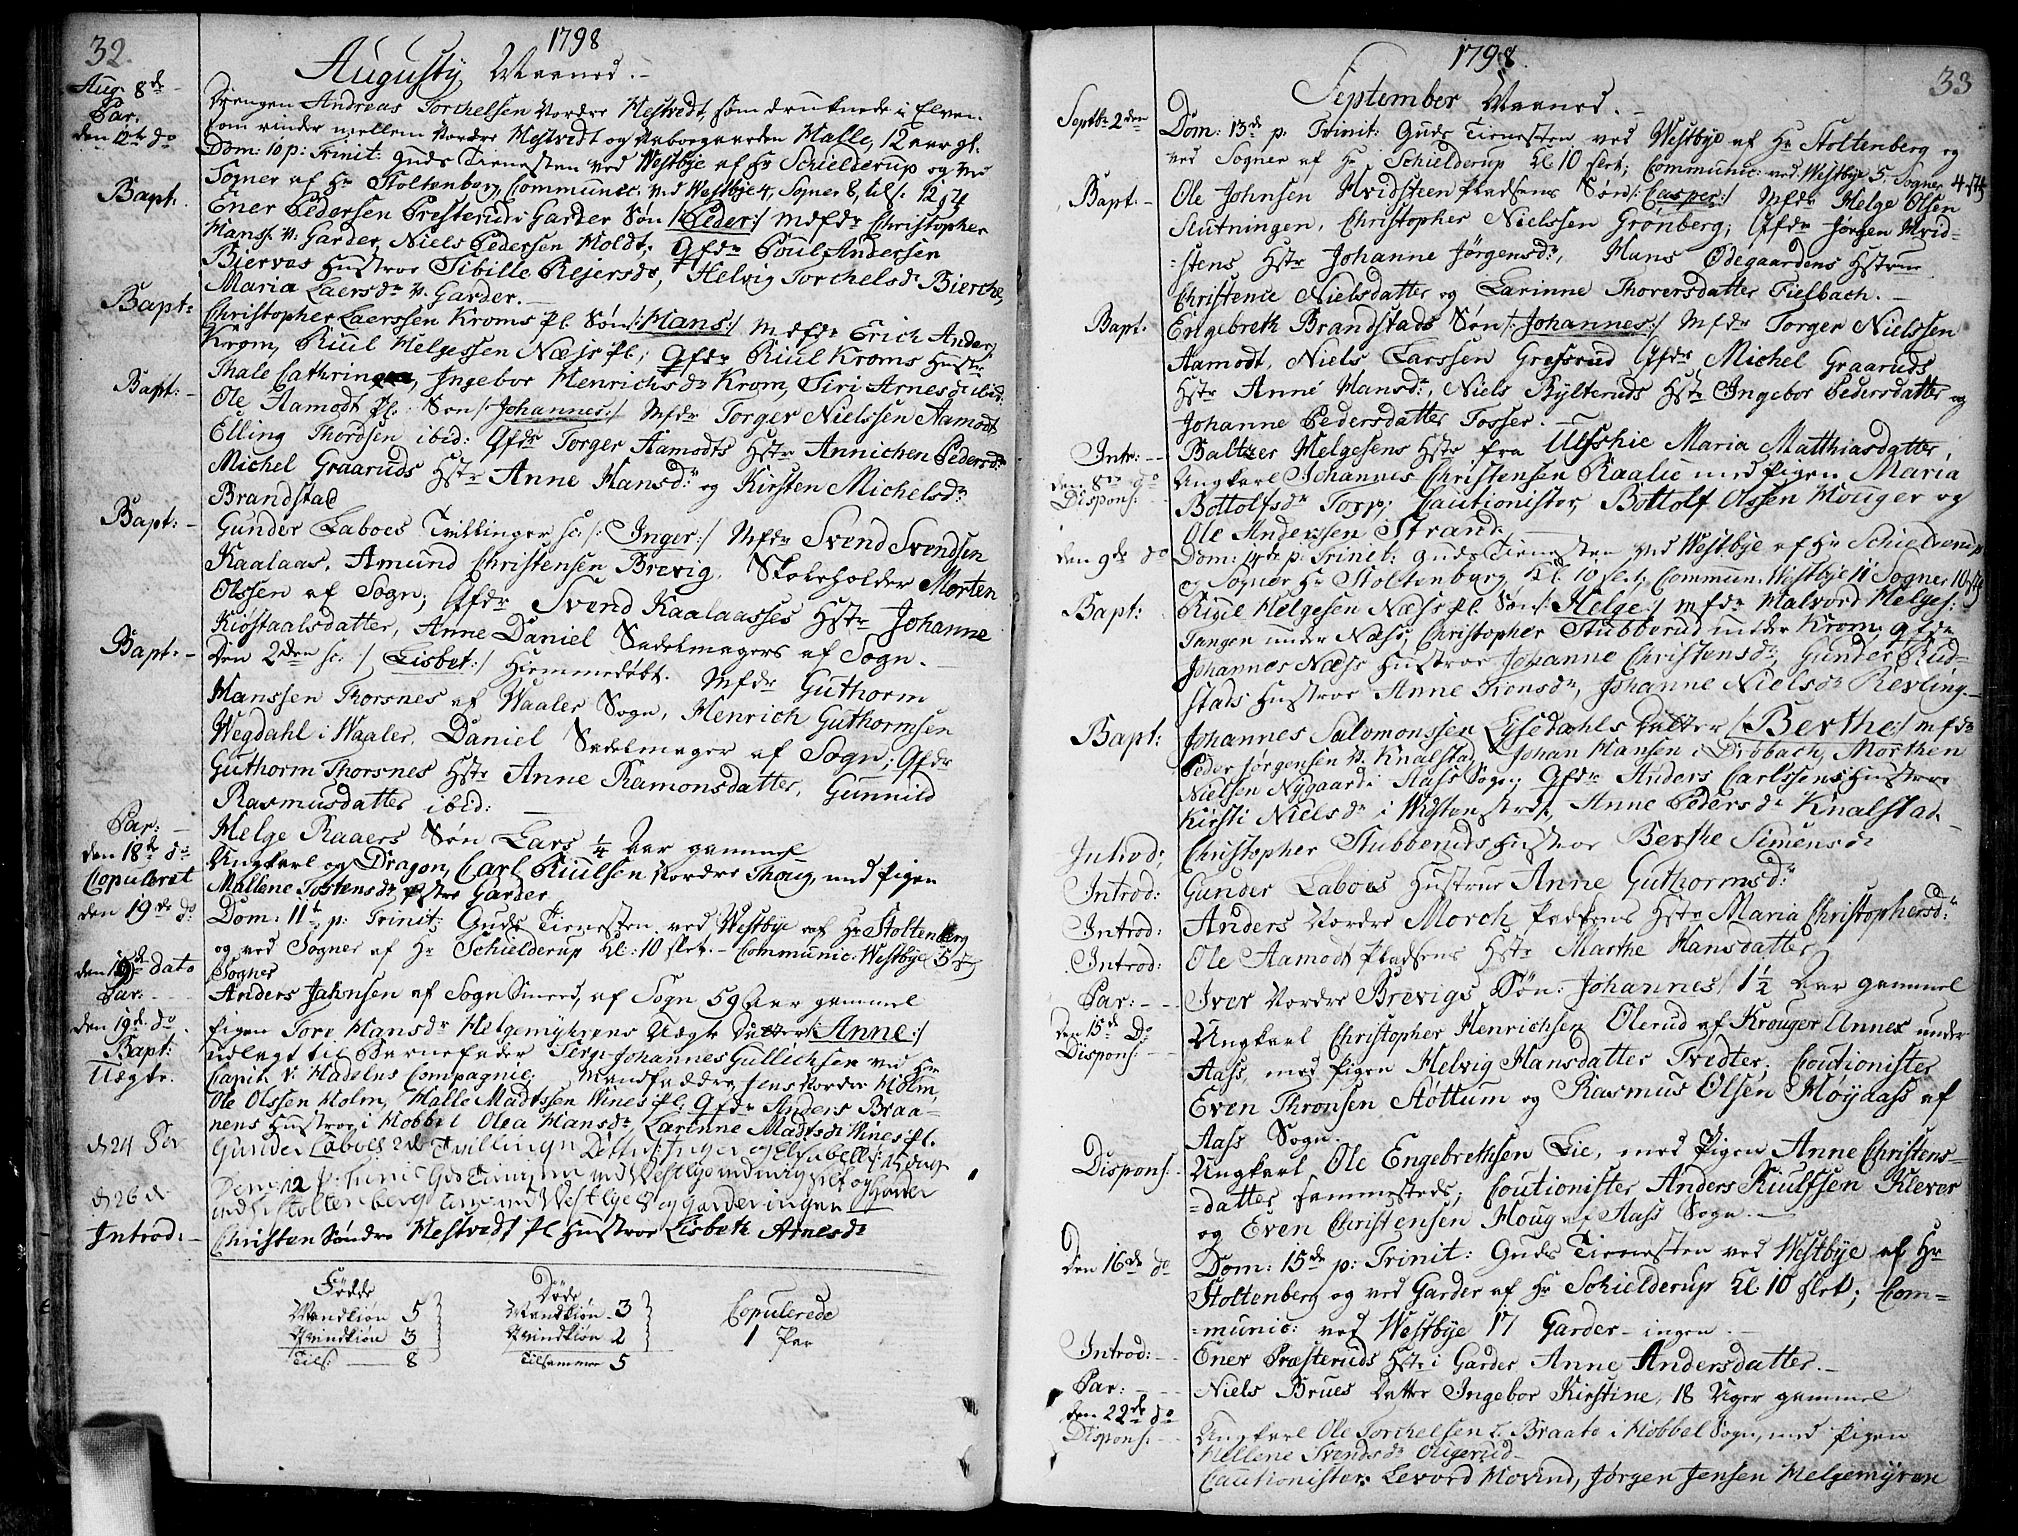 32.
1798
Augusty Maaned.
Aug. 8de
Par.
Drengen Andreas Torchelsen Nordre Hestvedt, som druknede i Elven
som rinder mellem Nordre Hestvedt og Naboegaarden Halle, 12 aar gl.
den 12te do
Dom: 10 p: Trinit: Guds Tienesten ved Westbye af Hr Schielderup og ved
Sogner af Hr Stoltenberg, Communic: ved Westbye 4, Sogner 8, tils: 12
Bapt.
Ener Pedersen Presteruds Garder Søn /:Peder:/ Mdfdr Christopher
Hans: v. Garder, Niels Pedersen Holdt; Qfdr Poul Andersen
Biervas Hustroe Sibille Rejersdr, Helvig Torchelsdr Bierche,
Maria Laersdr v. Garder.
Bapt:
Christopher Laerssen Kroms Pl. Søn /:Hans:/ Mdfdr Erich Anders:
Krom, Riul Helgessen Næss Pl; Qfdr Riul Kroms Hustr
Thale Cathrine, Ingebor Henrichsdr Krom, Siri Arnesdr ibid:
Bapt:
Ole Aamodt Pl: Søn /:Johannes:/ Mfdr Torger Nielssen Aamodt
Elling Thordsen ibid: Qfdr Torger Aamodts Hstr Annichen Pedersdr
Michel Graaruds Hstr Anne Hansdr og Kirsten Michelsdr
Brandstad
Bapt:
Gunder Laboes Tvillinger sc: /:Inger:/ Mfdr Svend Svendsen
Kaalaas, Amund Christensen Brevig, Skoleholder Morten
Olssen af Sogn; Qfdr Svend Kaalaasses Hstr Johanne
Kiøstaalsdatter, Anne Daniel Sadelmagers af Sogn.
Bapt:
Den 2den sc: /:Lisbet:/ Hiemmedøbt. Mfdr Guthorm
Hanssen Thorsnes af Waaler Sogn, Henrich Guthormsen
Wegdahl i Waaler, Daniel Sadelmager af Sogn; Qfdr
Guthorm Thorsnes Hstr Anne Ramonsdatter, Gunnild
Rasmusdatter ibid:
Par:
Helge Raaers Søn Lars 1/4 Aar gammel
den 18de do
Copuleret
Ungkarl og Dragon, Carl Riulsen Nordre Thoug, med Pigen
Mallene Tostensdr Østre Garder
den 19de do
Dom: 11te p: Trinit: Guds Tienesten ved Westbye af Hr Stoltenberg
og ved Sogner af Hr Schielderup Kl: 10 slet. Communic: Westbye 5
Sogner
den 19de dato
Par:
Anders Jahnsen af Sogn Smeed, af Sogn 59 Aar gammel
den 19de do
Bapt:
Uægte.
Pigen Tore Hansdr Helgemyhrens Uægte Datter /:Anne:/
udlagt til Barnefader Serg: Johannes Gullichsen ved Hr
Capit: v: Hadelns Compagnie; Mandfaddre Jens Nordre Holm,
Ole Olssen Holm, Halle Madtssen Vines Pl; Qfdr Anders Braa-
nens Hustroe i Hobbel Olea Hansdr, Karinne Madtsdr Vines Pl.
d 24 Par
Gunder Laboes 2de Tvillinge Døttr: Inger og Elisabeth: 15 dage
d 26 d
Dom: 12 p: Trinit: Gds Tienesten ved Westbye
Stoltenberg Westbye og Garder ingen
Introd:
Christen Søndre Hestvedt Pl Hustroe Lisbeth Arnesdr
Fødde
Mandkiøn 5
Qvindkiøn 3
Tils: 8
Døde
Mandkiøn 3
Qvindkiøn 2
Tilsammen 5
Copulerede
1 Par
33
1798.
September Maaned.
Septbr 2den
Dom: 13de p: Trinit: Guds Tienesten ved Westbye af Hr Stoltenberg og
ved Sogner af Hr Schielderup Kl 10 slet; Communic: ved Westbye 5 Sogner 4
Bapt.
Ole Johnsen Hvidsteen Pladsens Søn /:Casper:/ Mfdr Helge Olsen
Slutningen, Christopher Nielssen Grønberg; Qfdr Jørgen Hvid-
=stens Hstr Johanne Jørgensdr, Hans Ødegaardens Hstrue
Christence Nielsdatter og Larinne Thoversdatter Fielbach.
Bapt.
Engebreth Brandstads Søn /:Johannes:/ Mfdr Torger Nielssen
Aamodt, Niels Larssen Gresrud Qfdr Michel Graaruds
Hstr Anne Hansdr, Niels Bylteruds Hstr Ingebor Pedersdatter og
Johanne Pedersdatter Tosser.
Intr:
Baltzer Helgesens Hstr fra Ulfskie Maria Matthiasdatter,
den 8de do
Dispons:
Ungkarl Johannes Christensen Raalie med Pigen Maria
Bottolfsdr Torp; Cautionister, Bottolf Olssen Houger og
Ole Anderssen Strand.
den 9de do
Dom: 14de p: Trinit: Guds Tienesten ved Westbye af Hr Schielderup
og Sogner Hr Stoltenberg Kl. 10 slet; Commun: Westbye 11 Sogner 10
Bapt:
Riul Helgesen Næss Pl. Søn /:Helge:/ Mfdr Halvord Helges:
Tangen under Næss, Christopher Stubberud under Krom; Qfdr
Johannes Næss Hustroe Johanne Christensdr, Gunder Rud-
stads Hustroe Anne Siensdr, Johanne Nielsdr Revling.
Bapt:
Johannes Salomonssen Lysedahls Datter /:Berthe:/ Mfdr
Peder Jørgensen v. Knalstad, Johan Hansen i Drøbach, Morthen
Nielsen Nygaard i Aass Sogn; Qfdr Anders Carlssens Hustroe
Kirsti Nielsdr i Widsten strdt, Anne Pedersdr Knalstad.
Introd:
Christopher Stubberuds Hustroe Berthe Simensdr
Introd:
Gunder Laboes Hustrue Anne Guthormsdr
Introd:
Anders Nordre Morch Pladsens Hstr Maria Christophersdr
Introd:
Ole Aamodt Pladsens Hstr Marthe Hansdatter
Par:
Iver Nordre Brevigs Søn: Johannes 1½ Aar gammel
Den 15de Do
Dispons:
Ungkarl Christopher Henrichsen Olerud af Krouger Annex under
Aass, med Pigen Helvig Hansdatter Tvedter; Coutionister
Even Thronsen Støttum og Rasmus Olsen Høyaass af
Aass Sogn.
Dispons:
Ungkarl Ole Engebrethsen Lie, med Pigen Anne Christens-
=datter sammesteds; Coutionister Anders Riulssen Klever
og Even Christensen Houg af Aass Sogn.
Den 16de do
Dom: 15de p: Trinit: Guds Tienesten ved Westbye af Hr
Stoltenberg og ved Garder af Hr Schielderup Kl. 10 slet; Com-
=munic: ved Westbye 17 Garder - ingen
Introd:
Ener Præsteruds Hstr i Garder Anne Andersdatter.
Par:
Niels Brues Datter Ingebor Kirstine, 18 Uger gammel
den 22de do
Dispons:
Ungkarl Ole Torchelsen L. Braate i Hobbel Sogn, med Pigen
Hellene Svendsdr Ougerud
Cautionister: Levord Hovind, Jørgen Jensen Helgemyren